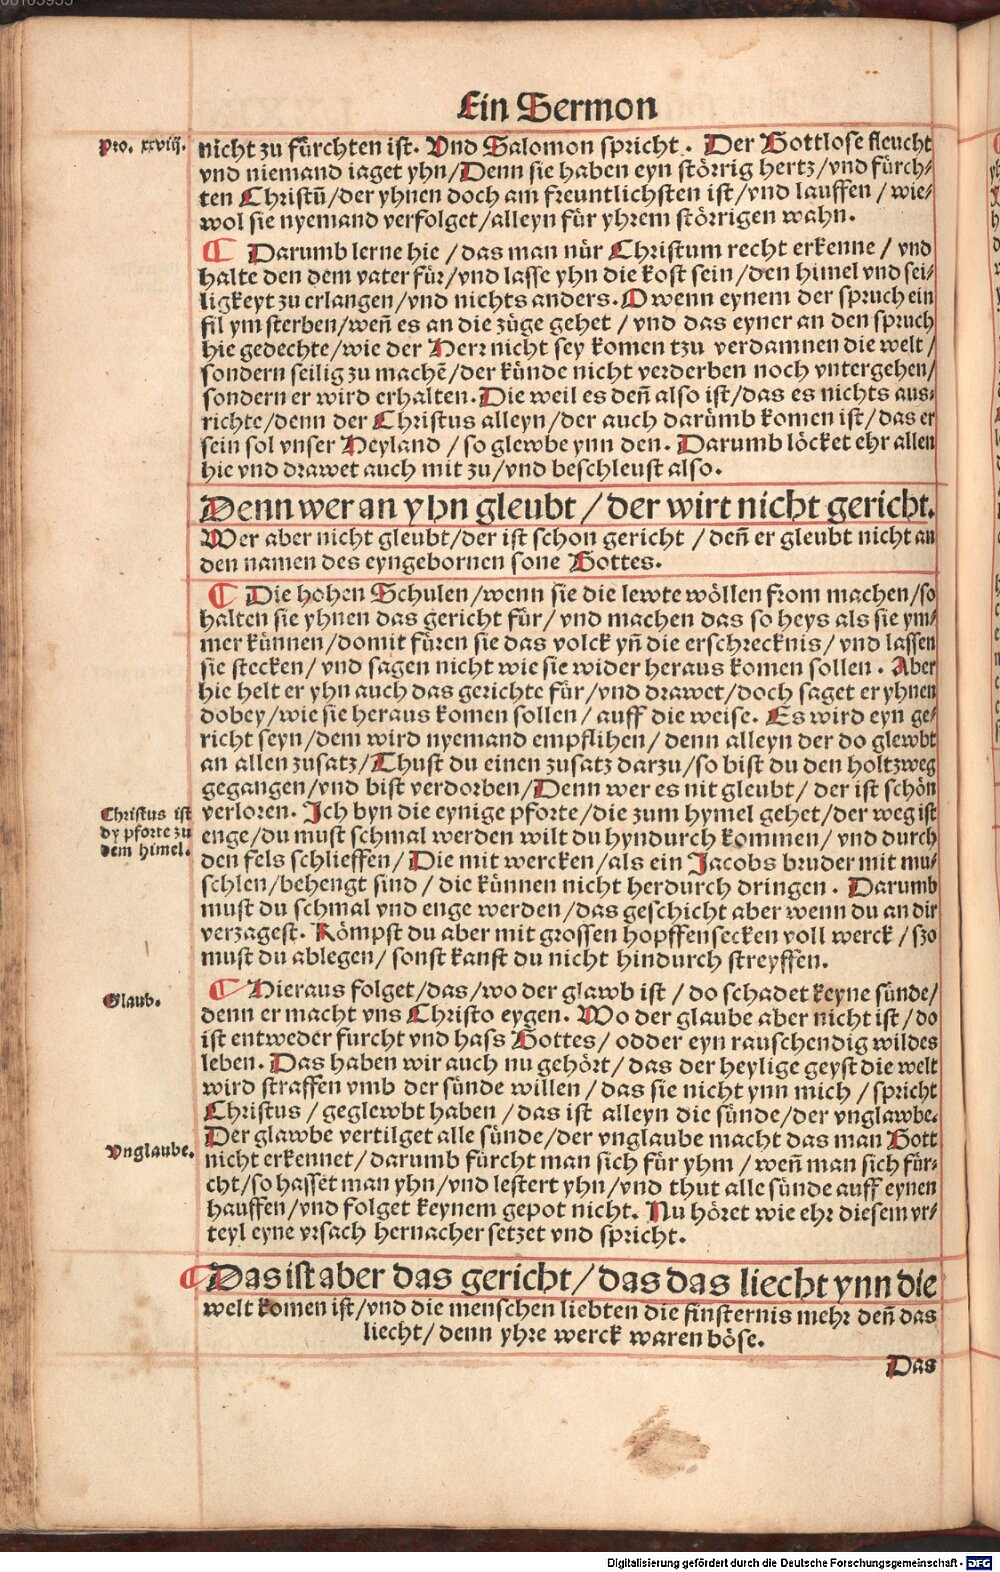 Ein Sermon
Pro. xxviij.
nicht zu fürchten ist. Vnd Salomon spricht. Der Gottlose fleucht
vnd niemand iaget yhn/Denn sie haben eyn störrig hertz/vnd fürch⸗
ten Christū/der yhnen doch am freuntlichsten ist/vnd lauffen/wie⸗
wol sie nyemand verfolget/alleyn für yhrem störrigen wahn.
¶ Darumb lerne hie/das man nür Christum recht erkenne/vnd
halte den dem vater für/vnd lasse yhn die kost sein/den himel vnd sei⸗
ligkeyt zu erlangen/vnd nichts anders. O wenn eynem der spruch ein
fil ym sterben/wen̄ es an die züge gehet/vnd das eyner an den spruch
hie gedechte/wie der Herr nicht sey komen tzu verdamnen die welt/
sondern seilig zu machē/der künde nicht verderben noch vntergehen/
sondern er wird erhalten. Die weil es den̄ also ist/das es nichts aus⸗
richte/denn der Christus alleyn/der auch darümb komen ist/das er
sein sol vnser Heyland/so glewbe ynn den. Darumb löcket ehr allen
hie vnd drawet auch mit zu/vnd beschleust also.
Denn wer an yhn gleubt/der wirt nicht gericht.
Wer aber nicht gleubt/der ist schon gericht/den̄ er gleubt nicht an
den namen des eyngebornen sone Gottes.
¶ Die hohen Schulen/wenn sie die lewte wöllen from machen/so
halten sie yhnen das gericht für/vnd machen das so heys als sie ym⸗
mer künnen/domit füren sie das volck yn̄ die erschrecknis/vnd lassen
sie stecken/vnd sagen nicht wie sie wider heraus komen sollen. Aber
hie helt er yhn auch das gerichte für/vnd drawet/doch saget er yhnen
dobey/wie sie heraus komen sollen/auff die weise. Es wird eyn ge⸗
richt seyn/dem wird nyemand empflihen/denn alleyn der do glewbt
an allen zusatz/Thust du einen zusatz darzu/so bist du den holtzweg
gegangen/vnd bist verdorben/Denn wer es nit gleubt/der ist schön
Christus ist
dy pforte zu
dem himel.
verloren. Ich byn die eynige pforte/die zum hymel gehet/der weg ist
enge/du must schmal werden wilt du hyndurch kommen/vnd durch
den fels schlieffen/Die mit wercken/als ein Jacobs bruder mit mu⸗
schlen/behengt sind/die künnen nicht herdurch dringen. Darumb
must du schmal vnd enge werden/das geschicht aber wenn du an dir
verzagest. Kömpst du aber mit grossen hopffensecken voll werck/szo
must du ablegen/sonst kanst du nicht hindurch streyffen.
Glaub.
¶ Hieraus folget/das/wo der glawb ist/do schadet keyne sünde/
denn er macht vns Christo eygen. Wo der glaube aber nicht ist/do
ist entweder furcht vnd hass Gottes/odder eyn rauschendig wildes
leben. Das haben wir auch nu gehört/das der heylige geyst die welt
wird straffen vmb der sünde willen/das sie nicht ynn mich/spricht
Christus/geglewbt haben/das ist alleyn die sünde/der vnglawbe.
Der glawbe vertilget alle sünde/der vnglaube macht das man Gott
Vnglaube.
nicht erkennet/darumb fürcht man sich für yhm/wen̄ man sich für⸗
cht/so hasset man yhn/vnd lestert yhn/vnd thut alle sünde auff eynen
hauffen/vnd folget keynem gepot nicht. Nu höret wie ehr diesem vr⸗
teyl eyne vrsach hernacher setzet vnd spricht.
¶ Das ist aber das gericht/das das liecht ynn die
welt komen ist/vnd die menschen liebten die finsternis mehr den̄ das
liecht/denn yhre werck waren böse.
Das
Digitalisierung gefördert durch die Deutsche Forschungsgemeinschaft - DFG